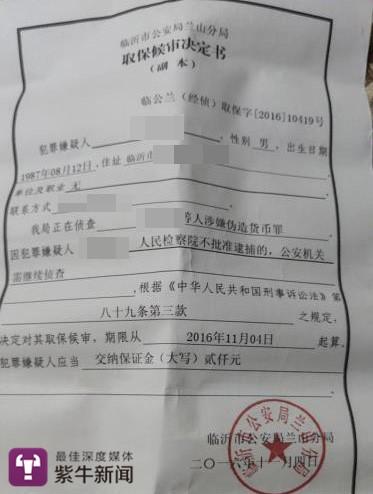 临沂市公安局兰山分局
取保候审决定书
(副本)
临公兰（经侦）取保字[2016]10419号
犯罪嫌疑人 性别 男, 出生日期
1987年08月12日, 住址 临沂市
单位及职业 无
联系方式
我局正在侦查 等人涉嫌伪造货币罪
因犯罪嫌疑人 人民检察院不批准逮捕的，公安机关
需继续侦查
, 根据《中华人民共和国刑事诉讼法》第
八十九条第三款 之规定,
决定对其取保候审, 期限从 2016年11月04日 起算。
犯罪嫌疑人应当 交纳保证金（大写）贰仟元
临沂市公安局兰山分局
二〇一六年十一月四日
临沂市公安局兰山分局
最佳深度媒体
紫牛新闻